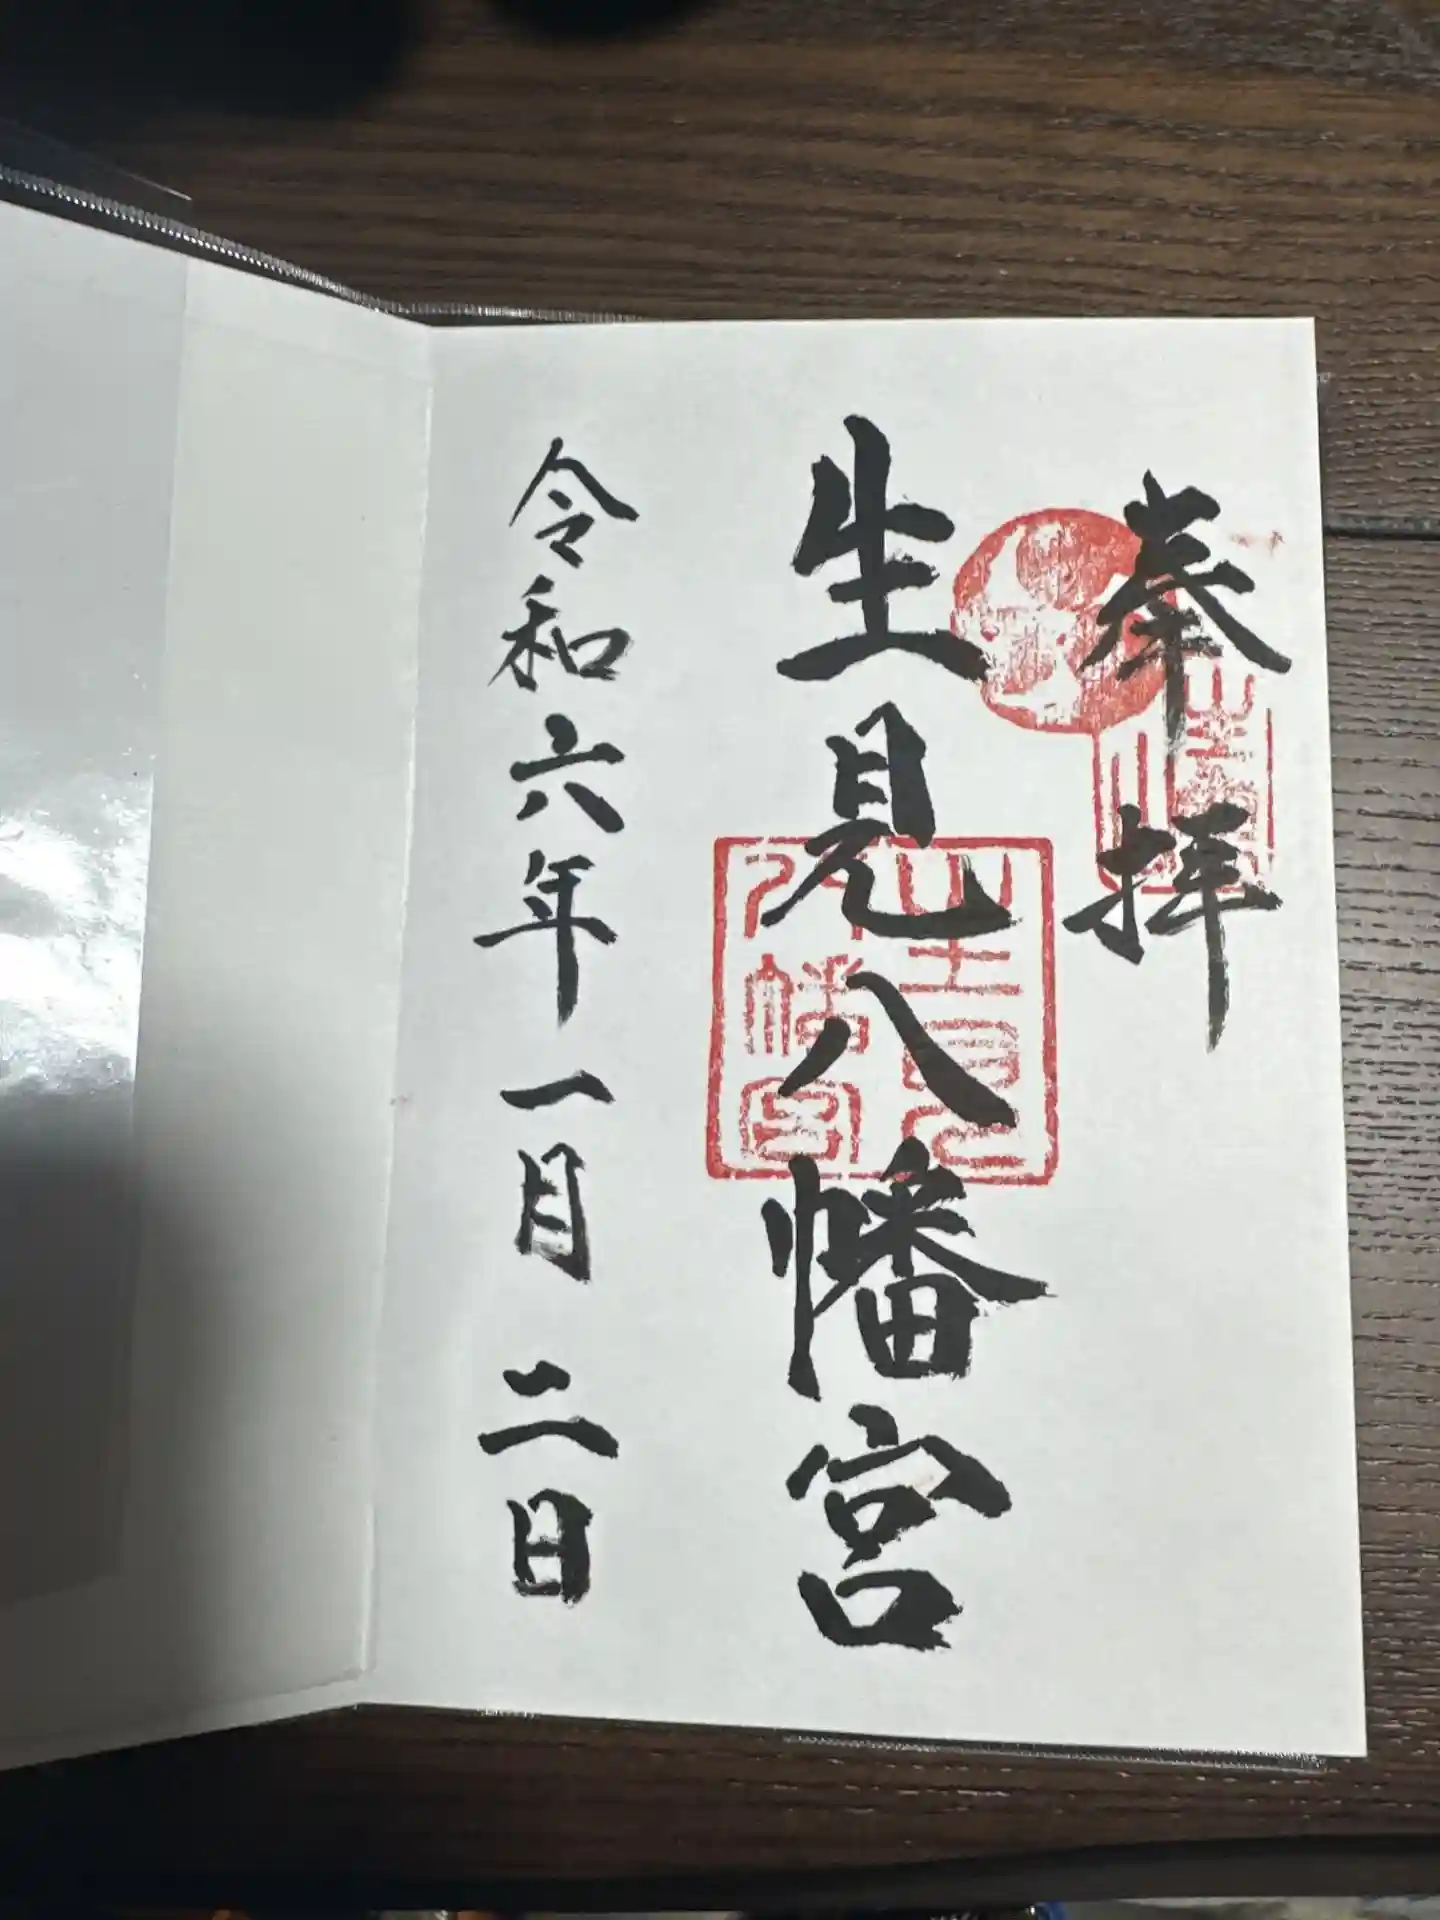 奉拝
生見八幡宮
令和六年一月二日
生見
八幡宮